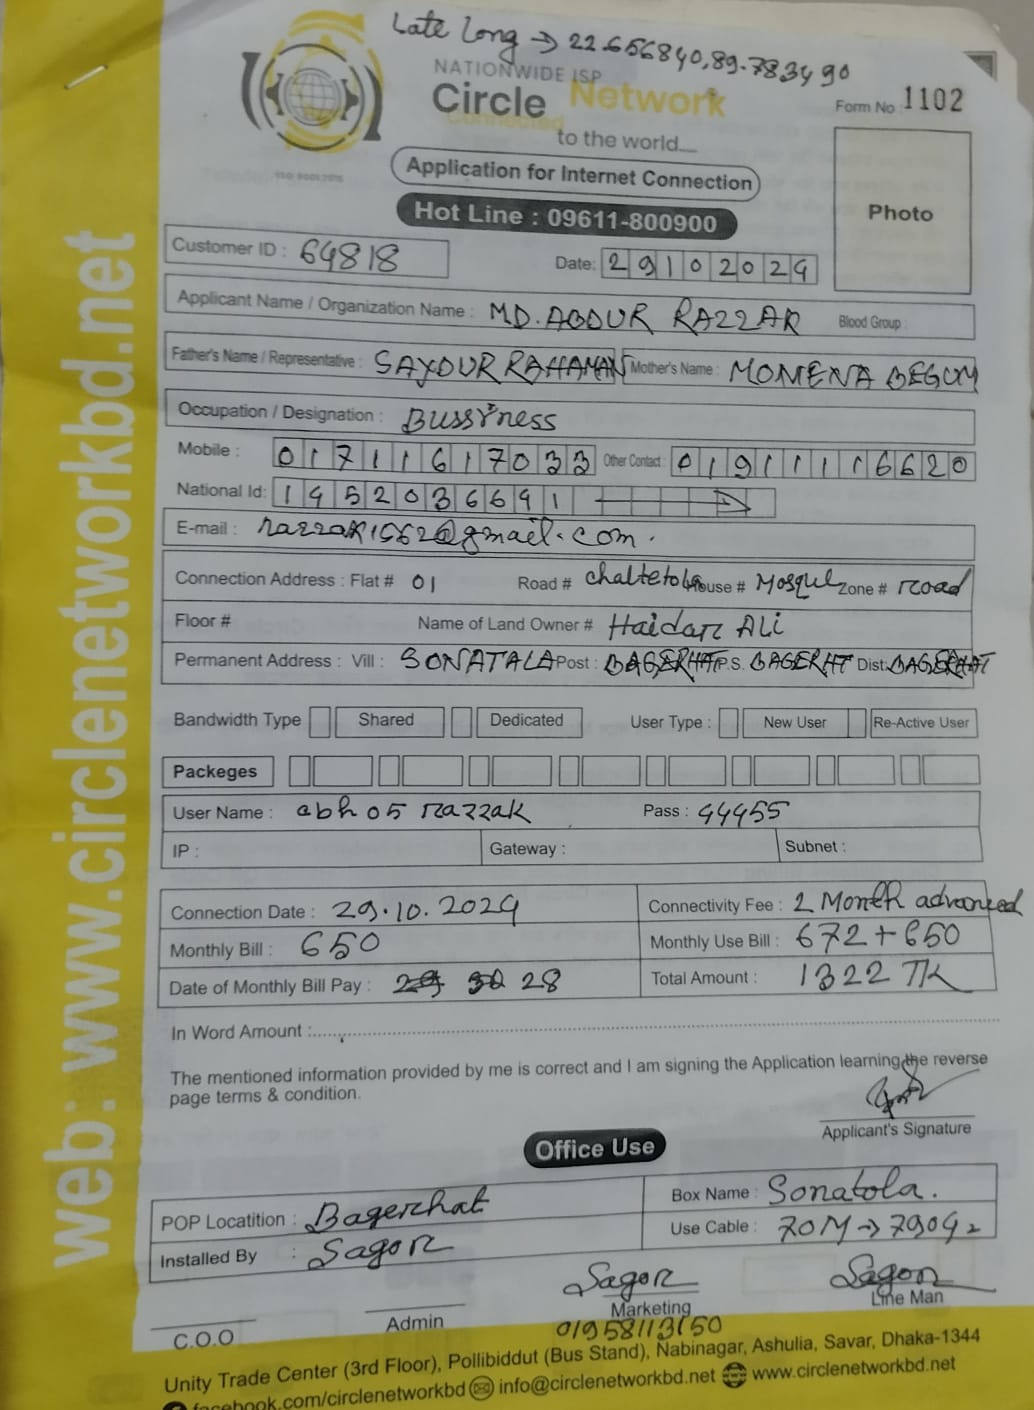 Late Long → 22.656840,89.783490
NATIONWIDE ISP
Circle Network
Connected
to the world....
Form No 1102
ISO 9001:2015
Application for Internet Connection
Hot Line : 09611-800900
Photo
Customer ID : 64818
Date: 29102024
Applicant Name / Organization Name : MD. ABDUR RAZZAK Blood Group :
Father's Name / Representative : SAYDUR RAHAMAN Mother's Name : MOMENA BEGUM
Occupation / Designation : Bussiness
Mobile : 01711617033 Other Contact : 01911116620
National Id: 1952036691
E-mail : razzak1562@gmail.com.
Connection Address : Flat # 01 Road # chaltetola House # Mosque Zone # road
Floor # Name of Land Owner # Haidar ALi
Permanent Address : Vill : SONATALA Post : BAGERHAT P.S. BAGERHT Dist. BAGERHAT
Bandwidth Type Shared Dedicated User Type : New User Re-Active User
Packeges
User Name : abh05razzak Pass : 44455
IP : Gateway : Subnet :
Connection Date : 29.10.2024 Connectivity Fee : 2 Month advanced
Monthly Bill : 650 Monthly Use Bill : 672+650
Date of Monthly Bill Pay : 28 Total Amount : 1322 TK
In Word Amount :
The mentioned information provided by me is correct and I am signing the Application learning the reverse
page terms & condition.
Applicant's Signature
Office Use
POP Locatition : Bagerhat Box Name : Sonatola.
Installed By : Sagor Use Cable : 70M→
Sagor Sagor
C.O.O Admin Marketing Line Man
01958113150
Unity Trade Center (3rd Floor), Pollibiddut (Bus Stand), Nabinagar, Ashulia, Savar, Dhaka-1344
facebook.com/circlenetworkbd info@circlenetworkbd.net www.circlenetworkbd.net
web: www.circlenetworkbd.net